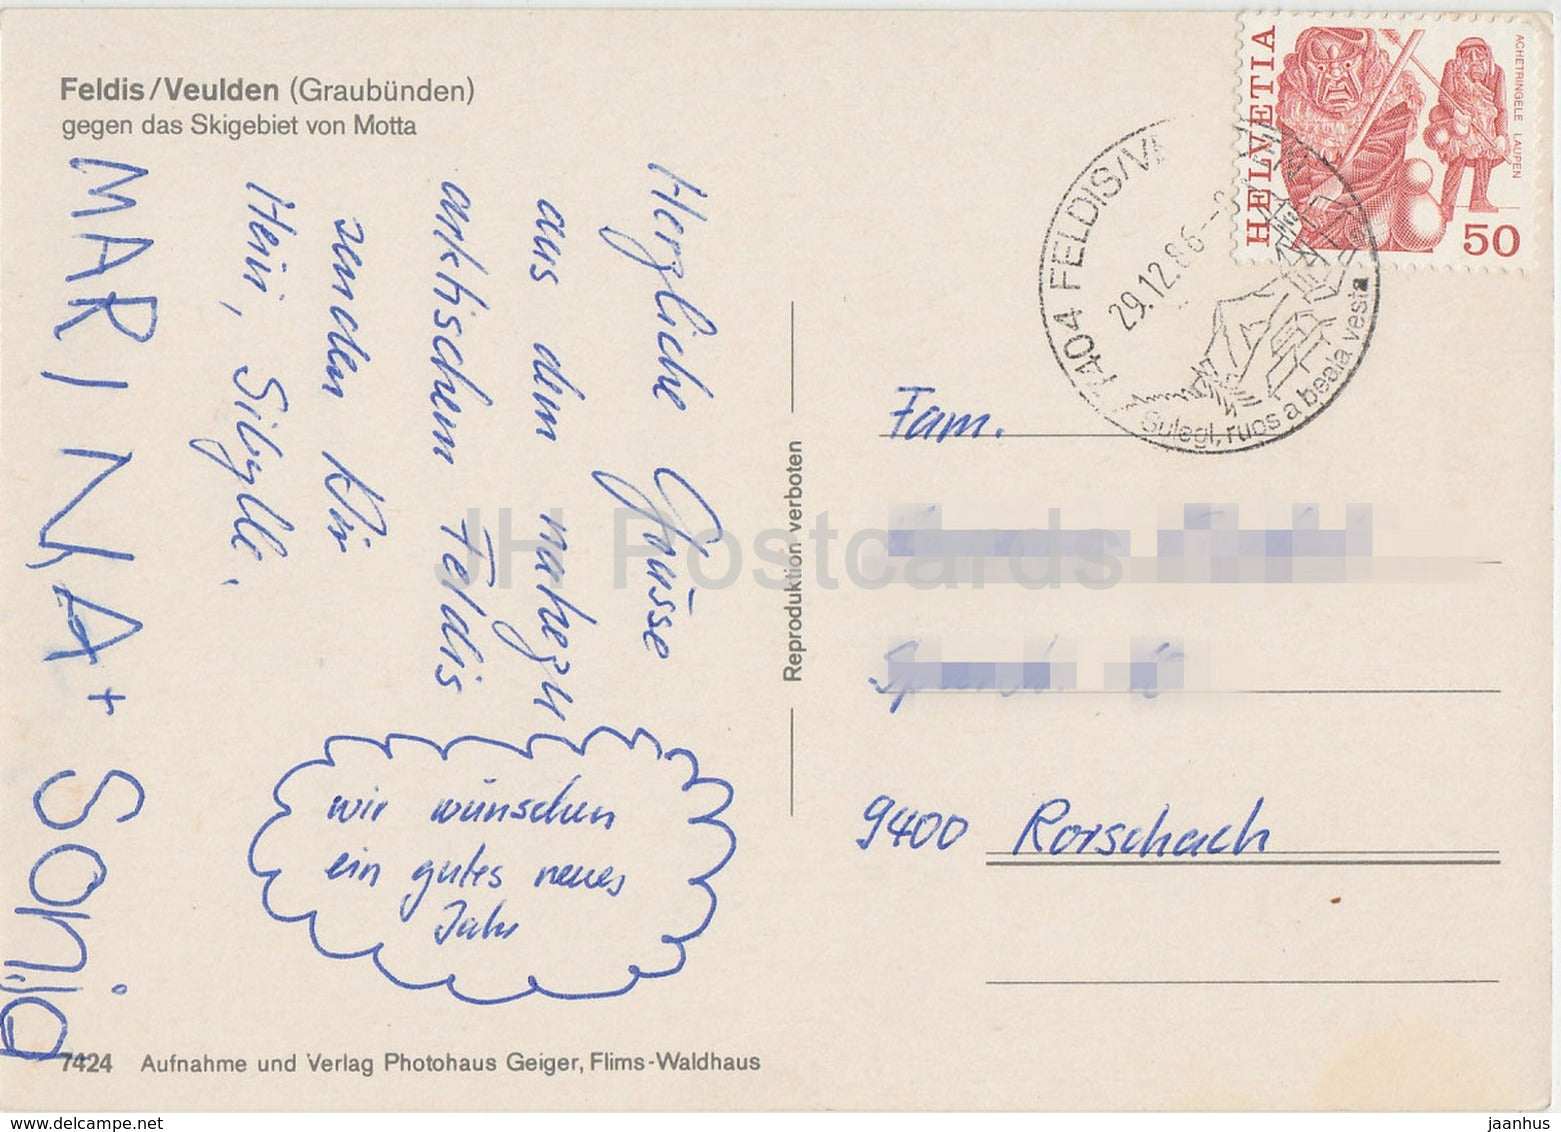 Feldis/Veulden (Graubünden)
gegen das Skigebiet von Motta
Herzliche Grüsse
aus dem nahezu
arktischem Feldis
senden
Heiri, Sibylle,
MARINA +
Sonja
wir wünschen
ein gutes neues
Jahr
Reproduktion verboten
7424 Aufnahme und Verlag Photohaus Geiger, Flims-Waldhaus
HELVETIA
ACHETRINGELE LAUPEN
50
7404 FELDIS/VE
29.12.86
Sulegl, ruos a beala vesta
Fam.
9400 Rorschach
JH Postcards
www.delcampe.net
jaanhus